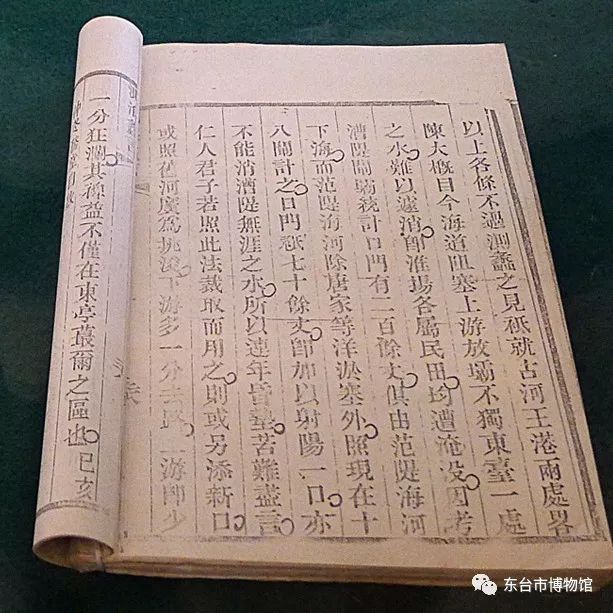 以上各條不過測蠡之見祗就古河王港兩處畧
陳大概目今海道阻塞上游放壩不獨東臺一處
之水難以濾消卽淮場各屬民田均遭淹没因考
漕隄閘壩統計口門有二百餘丈俱由范隄海河
下海而范隄海河除唐家等洋淤塞外照現在十
八閘計之口門祗七十餘丈卽加以射陽一口亦
不能消漕隄無涯之水所以連年昏墊苦難盡言
仁人君子若照此法裁取而用之則或另添新口
或照舊河慶爲挑浚下游多一分去游卽少
一分狂瀾其裨益不僅在東亭蕞爾之區也已亥
东台市博物馆